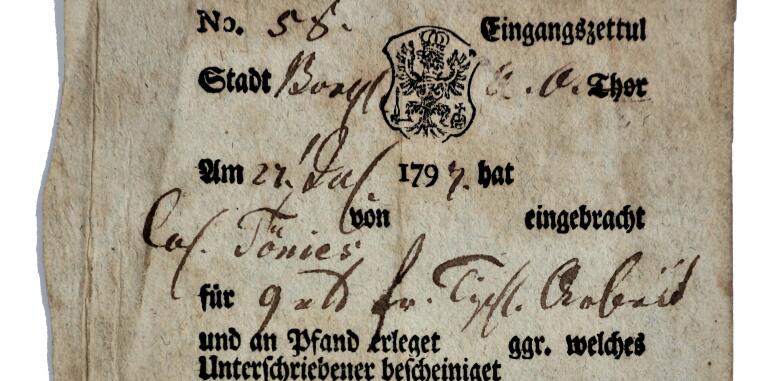 No. 58. Eingangszettul
Stadt O. Thor
Am 22. 1797. hat
von eingebracht
Tönies
für fr. Tischl. Arbeit
und an Pfand erleget ggr. welches
Unterschriebener bescheiniget